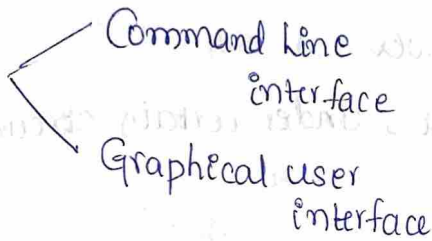 Command Line
interface
Graphical user
interface